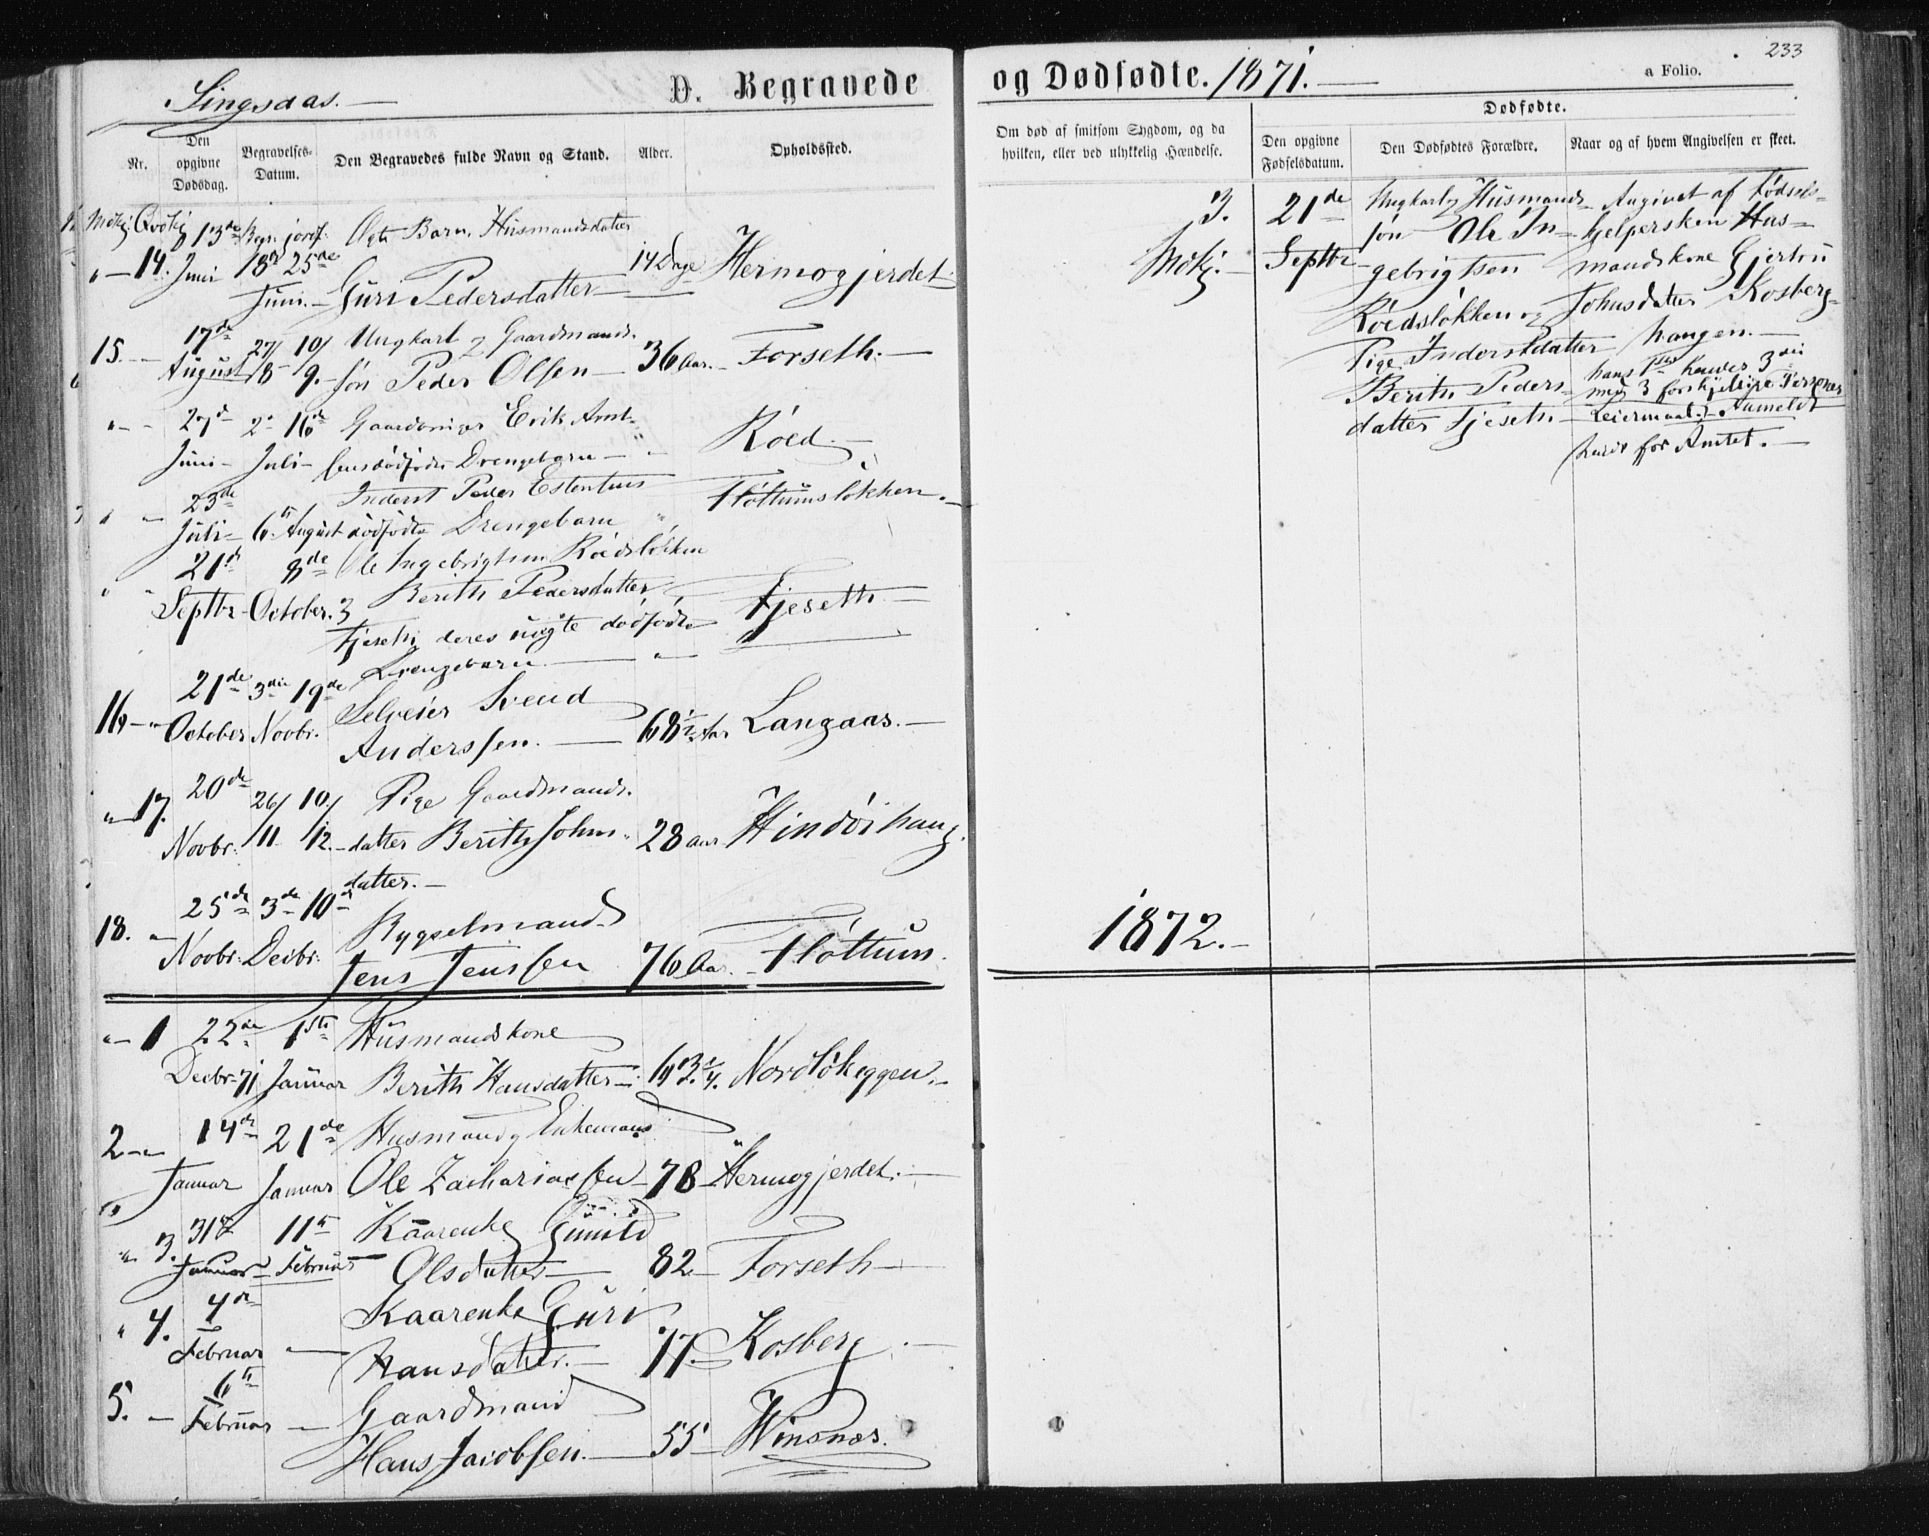 233
Singsaas.
D. Begravede
og Dødfødte. 1871.
a Folio.
Nr.
Den opgivne Dødsdag.
Begravelses-Datum.
Den Begravedes fulde Navn og Stand.
Alder.
Opholdssted.
Om død af smitsom Sygdom, og da
hvilken, eller ved ulykkelig Hændelse.
Dødfødte.
Den opgivne
Fødselsdatum.
Den Dødfødtes Forældre.
Naar og af hvem Angivelsen er skeet.
13de Begr. jordf. Ægte Barn. Husmandsdatter
14. Juni 18 25de
Juni. Guri Pedersdatter 14 Dage Hermogjerdet
17de 27/ 10/ Ungkarl og Gaardmands-
15. August 8 9. søn Peder Olsen 36 Aar. Forseth.
27d 2 16de Gaardbruger Erik Arnt-
Juni Juli sens dødfødte Drengebarn Roed
23de Inderst Peder Estensens Fløttumsløkken.
Juli 6 August dødfødte Drengebarn
21de 8de Ole Ingebrigtsen Roedsløkken
Septbr October. 3 Berith Pedersdatter
Fjeseth, deres uægte dødfødte Fjeseth
Drengebarn
21de 3die 19de Selveier Svend
16 October Novbr. Anderssen. 68 1/2 Aar Langaas.
20de 26/ 10/ Pige Gaardmands-
17. Novbr. 11 12. datter Berith Johns- 28 Aar Hindöihaug.
datter.
25de 3de 10de Bygselmand
18. Novbr. Decbr. Jens Jenssen 76 Aar. Fløttum.
1 22de 1ste Husmandskone
Decbr. 71 Januar Berith Hansdatter 63 3/4. Nordløkeggen.
14de 21de Husmand og Enkemand
2 Januar Januar Ole Zachariassen 78 Hermogjerdet.
3. 31te 11te Kaarenke Gunild
Januar Februar Olsdatter 82 Forseth
4. 4de Kaarenke Guri
Februar Hansdatter. 77. Kosberg
5. 6te Gaardmand
Februar Hans Jacobsen. 55 Winsnes.
3. 21de Ungkarl og Husmands- Angivet af Fødsels-
Mdkj. Septbr søn Ole In- hjelpersken Hus-
gebrigtsen mandskone Gjertru
Roedsløkken og Johnsdatter Kosberg-
Pige Inderstdatter haugen.
Berith Peders- hans 1ste hendes 3die
datter Fjeseth med 3 forskjellige Personer
Leiermaal. Anmeldt
for Amtet.
1872.